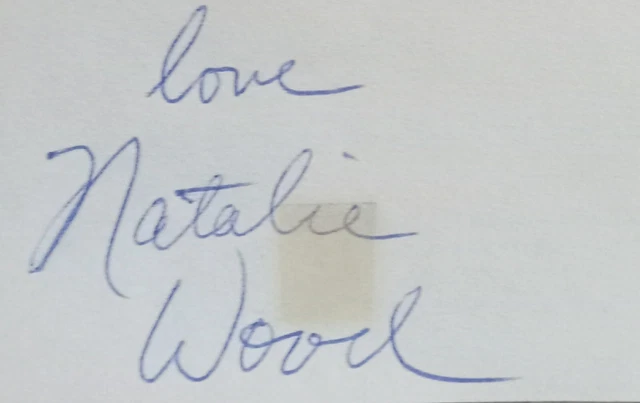 love
Natalie
Wood